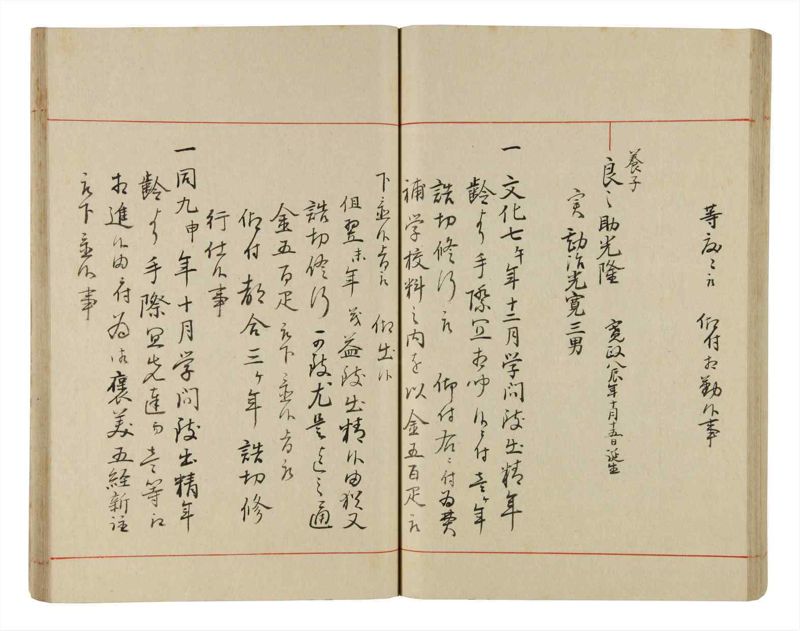 等 被 仰付相勤候事
養子
良之助光隆 寛政八辰年十月十五日誕生
実 勘治光寛三男
一 文化七午年十二月学問致出精年
齢より手際宜相聞候ニ付壱ヶ年
詰切修行被 仰付右ニ付為費
補学校料之内を以金五百疋被
下置候旨被 仰出候
但翌未年 益致出精候由猶又
詰切修行 可致尤是迄之通
金五百疋被下置候旨被
仰付都合三ヶ年 詰切修
行仕候事
一 同九申年十月学問致出精年
齢より手際宜先達而壱等被
相進候由ニ付為御褒美五経新註
被下置候事